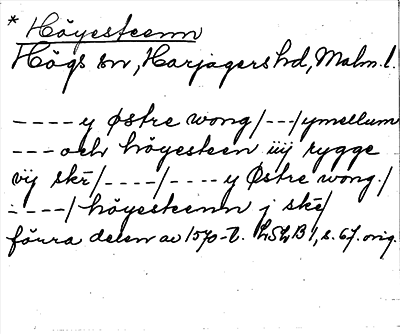 * Höyesteenn
Högs sn, Harjagers hd, Malm. l.
---- y Østre wong /---/ ymellum
--- och höyesteen iiij rygge
vij ske /----/ ---- y Østre wong /
----/ höyesteenn j ske /
förra delen av 1570-t. LSLB 1, s. 67. orig.